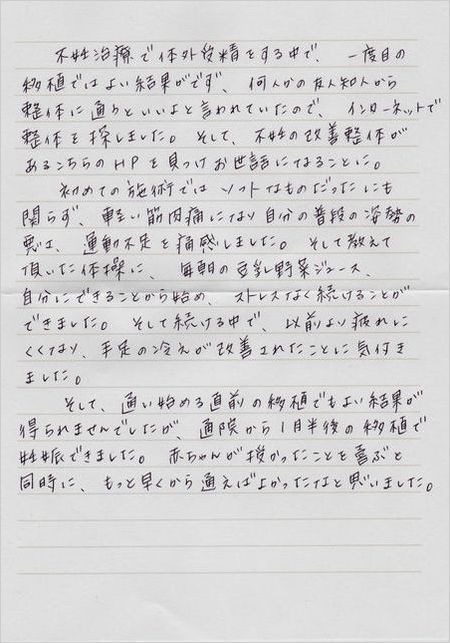 不妊治療で体外受精をする中で、一度目の
移植ではよい結果がでず、何人かの友人知人から
整体に通うといいよと言われていたので、インターネットで
整体を探しました。そして、不妊の改善整体が
あるこちらのHPを見つけお世話になることに。
初めての施術ではソフトなものだったにも
関らず、軽い筋肉痛になり自分の普段の姿勢の
悪さ、運動不足を痛感しました。そして教えて
頂いた体操に、毎朝の豆乳野菜ジュース、
自分にできることから始め、ストレスなく続けることが
できました。そして続ける中で、以前より疲れに
くくなり、手足の冷えが改善されたことに気付き
ました。
そして、通い始める直前の移植でもよい結果が
得られませんでしたが、通院から1月半後の移植で
妊娠できました。赤ちゃんが授かったことを喜ぶと
同時に、もっと早くから通えばよかったなと思いました。